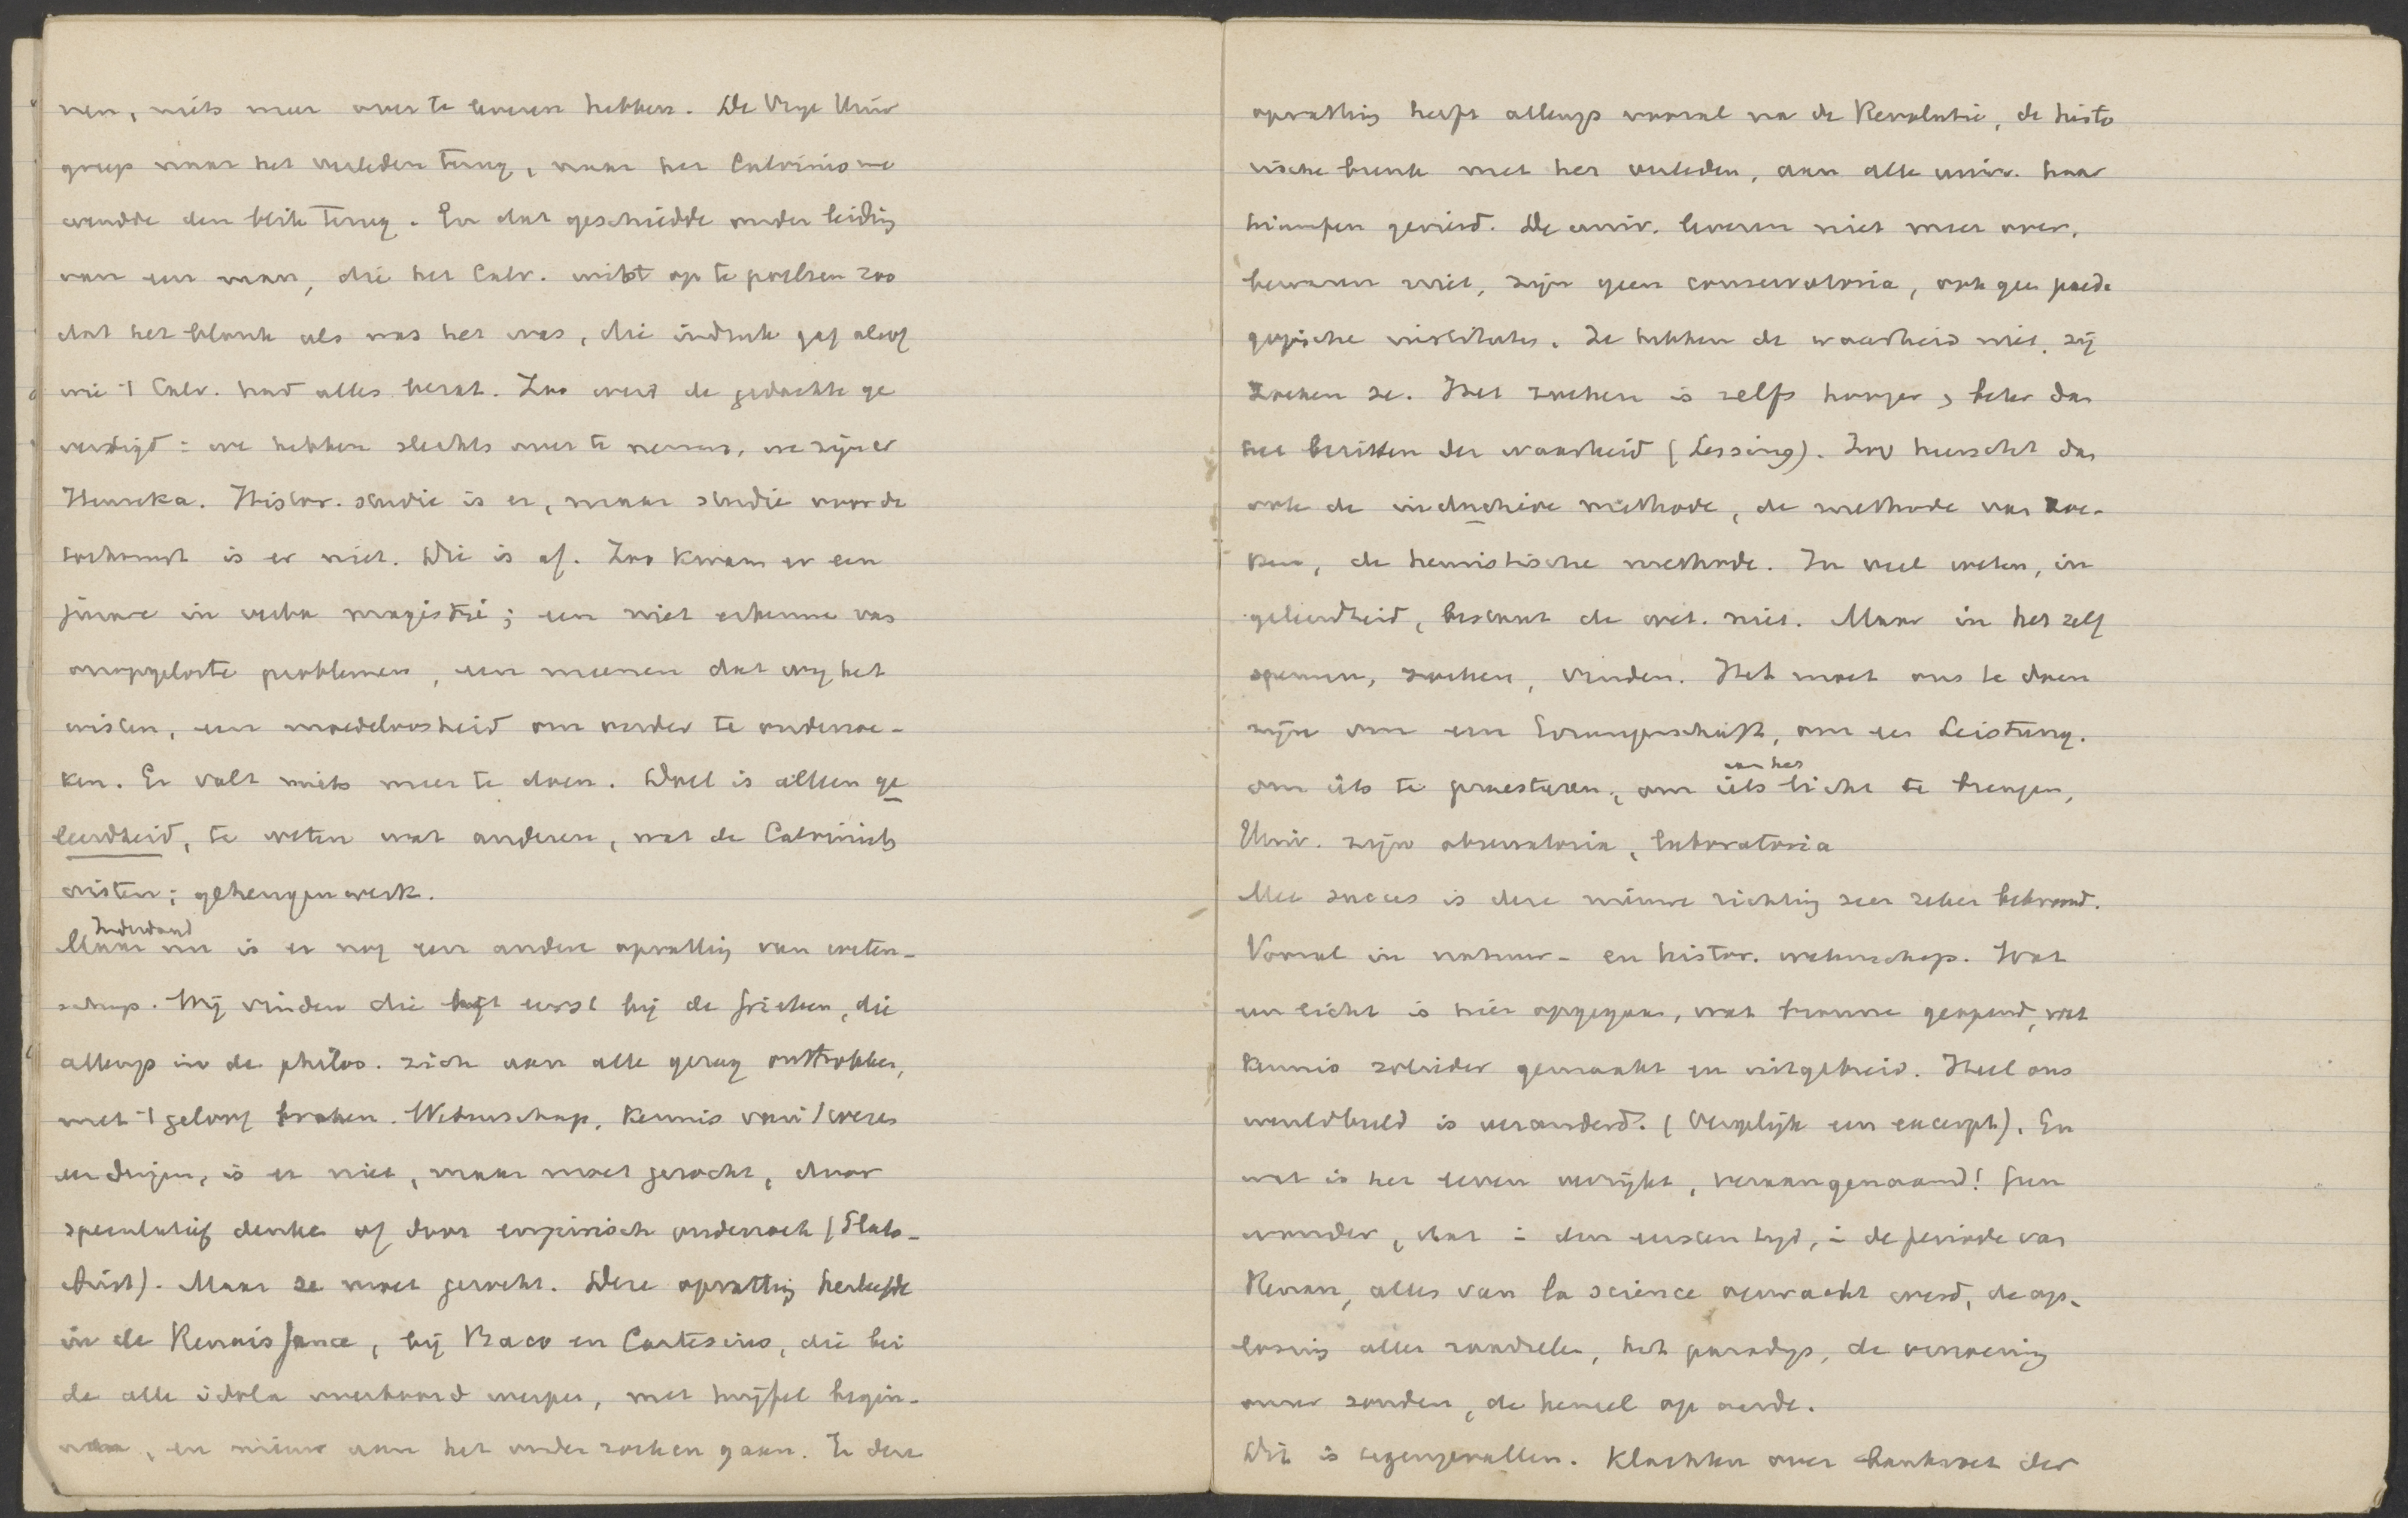 nen, niets meer over te leveren hebben. De Vrije Univ
greep naar het verleden terug, naar het Calvinisme
wendde den blik terug. En dat geschiedde onder leiding
van een man, die het Calv. wist op te poetsen zoo
dat het blonk als was het was, die indruk gaf alsof
wie 't Calv. had alles bezat. Zoo werd de gedachte ge
vestigd: we hebben slechts over te nemen, we zijn er
Heureka. Histor. studie is er, maar studie voor de
toekomst is er niet. Die is af. Zoo kwam er een
jurare in verba magistri; een niet erkennen van
onopgeloste problemen, een meenen dat wij het
wisten, een moedeloosheid om verder te onderzoe-
ken. Er valt niets meer te doen. Doel is alleen ge
leerdheid, te weten wat anderen, wat de Calvinists
wisten; geheugenwerk.
Inderdaad
Maar nu is er nog een andere opvatting van weten-
schap. Wij vinden die het eerst bij de Grieken, die
allengs in de philos. zich aan alle gezag onttrokken,
met 't geloof braken. Wetenschap, kennis van 't wezen
der dingen, is er niet, maar moet gezocht, door
speculatief denken of door empirisch onderzoek (Plato-
Arist). Maar ze moet gezocht. Deze opvatting herleefde
in de Renaissance, bij Baco en Cartesius, die bei
de alle idola overboord werpen, met twijfel begin-
nen, en nieuw aan het onderzoeken gaan. En deze
opvatting heeft allengs vooral na de Revolutie, de histo
rische breuk met het verleden, aan alle univ. haar
triumfen gevierd. De univ. leveren niet meer over,
bewaren niet, zijn geen conservatoria, ook geen paeda
gogische instituten. Ze hebben de waarheid niet, zij
zoeken ze. Het zoeken is zelfs hooger, beter dan
het bezitten der waarheid (Lessing). Zoo heerscht dan
ook de inductieve methode, de methode van zoe-
ken, de heuristische methode. In veel weten, in
geleerdheid, bestaat de wet. niet. Maar in het zelf
speuren, zoeken, vinden. Het moet ons te doen
zijn om een Errungenschaft, om een Leistung.
aan het
om iets te praesteren, om iets licht te brengen,
Univ. zijn observatoria, laboratoria
Met succes is deze nieuwe richting zeer zeker bekroond.
Vooral in natuur- en histor. wetenschap. Wat
een licht is hier opgegaan, wat bronnen geopend, wat
kennis solieder gemaakt en uitgebreid. Heel ons
wereldbeeld is veranderd. (Vergelijk een excerpt). En
wat is het leven verrijkt, veraangenaamd! Geen
wonder, dat in den eersten tijd, in de periode van
Renan, alles van la science verwacht werd, de op-
lossing aller raadselen, het paradijs, de verzoening
onzer zonden, de hemel op aarde.
Dit is tegengevallen. Klachten over bankroet der